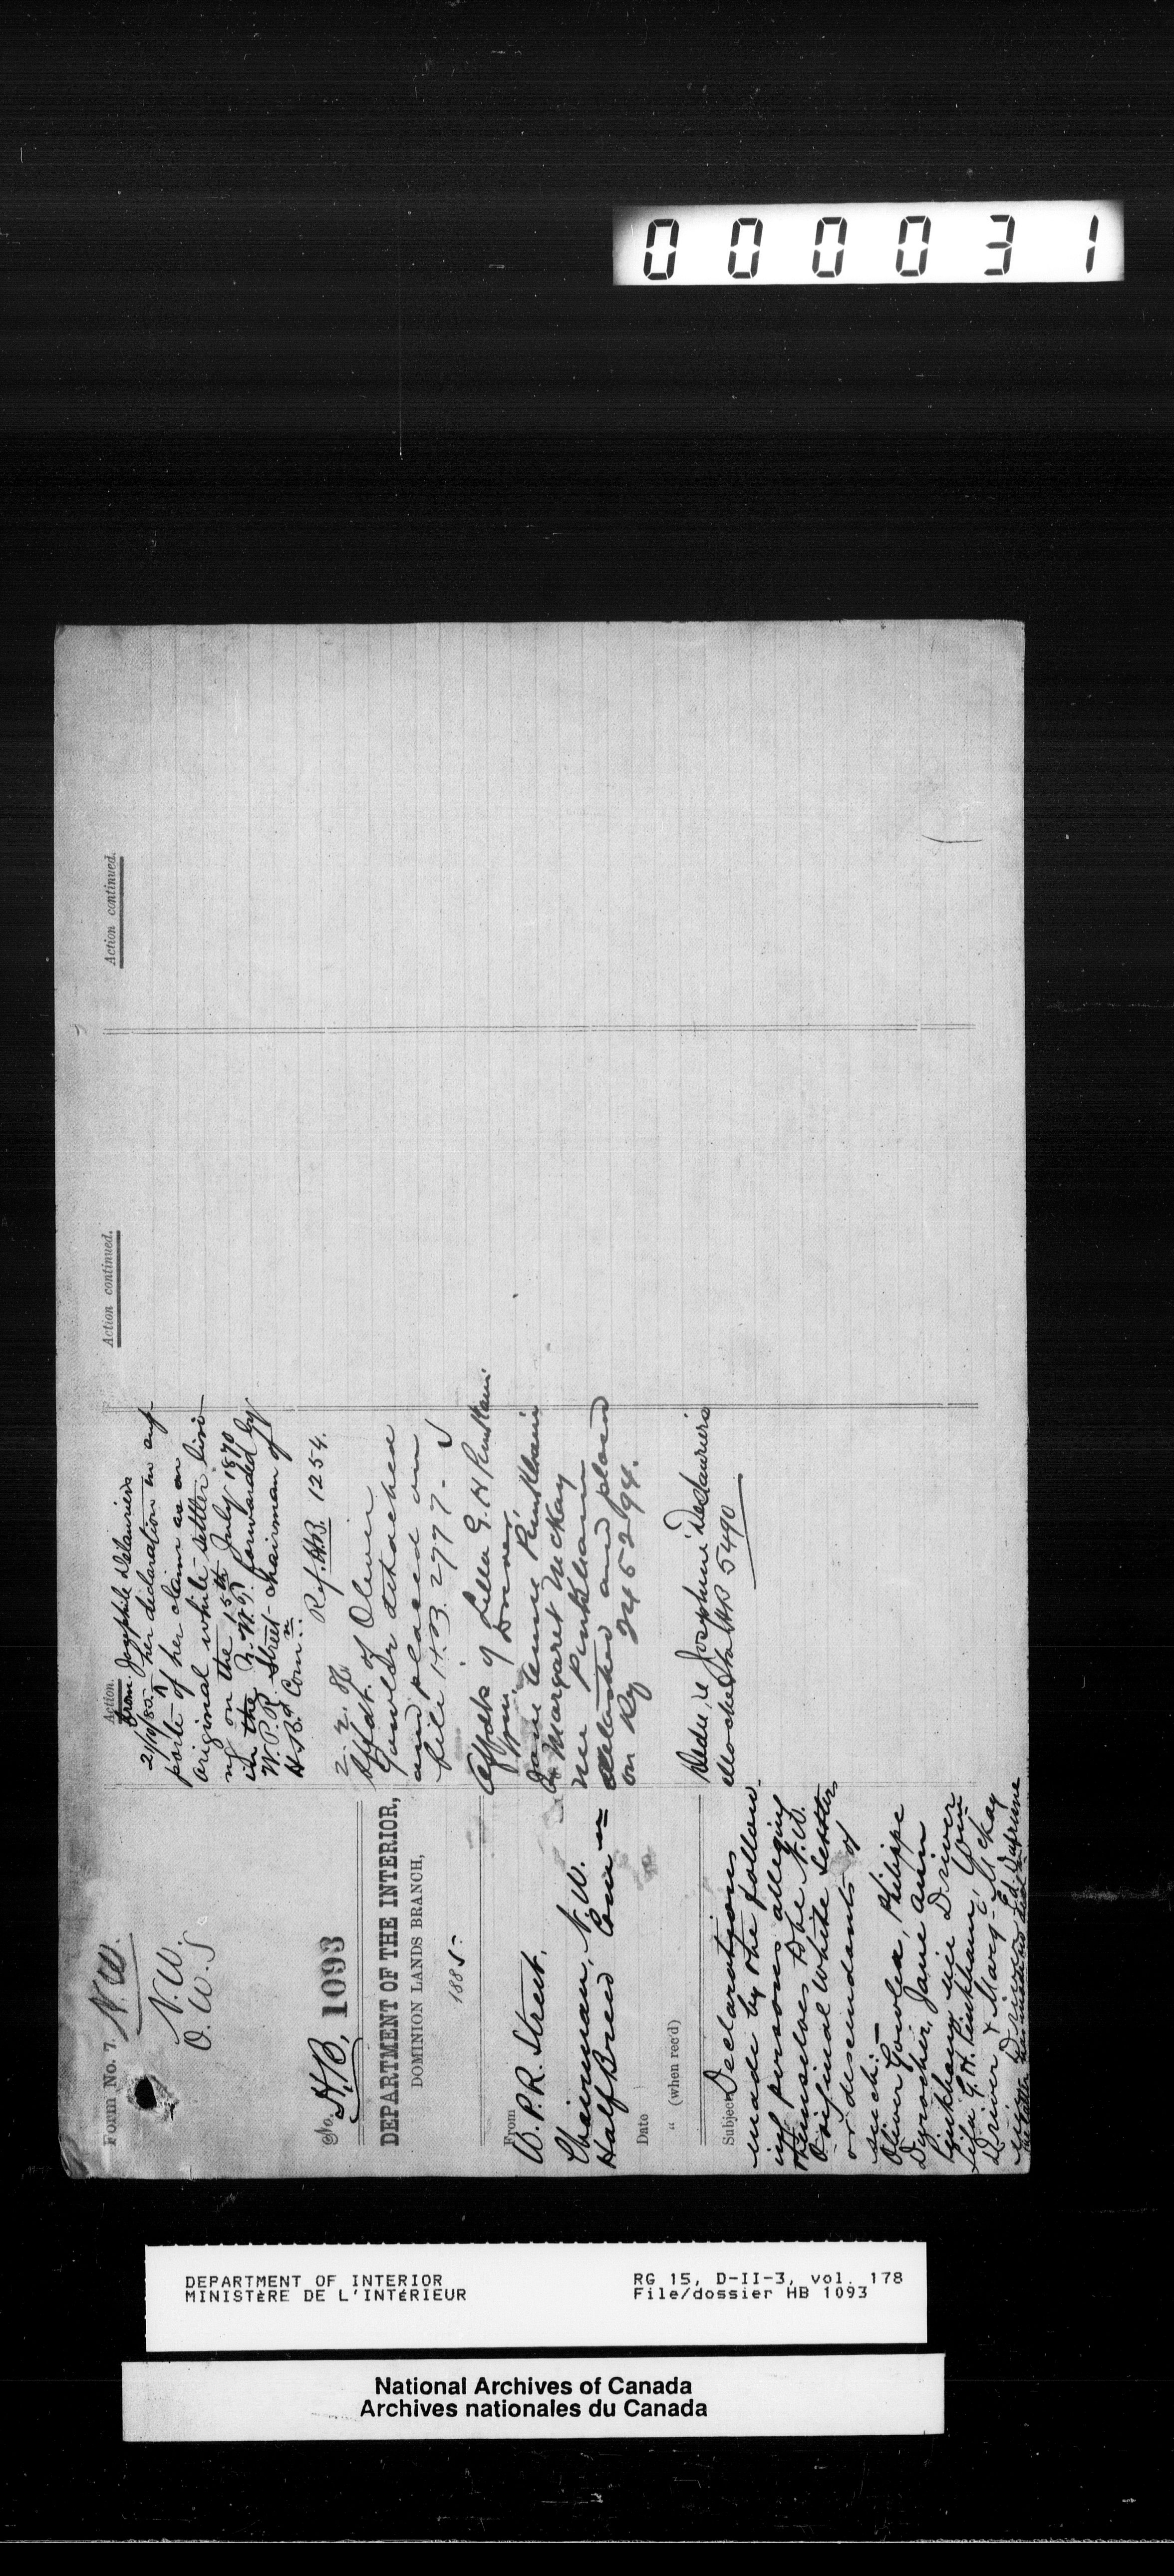 000031
Form No. 7.
N.W.
N.W.
O.W.S
No. H.B. 1093
DEPARTMENT OF THE INTERIOR,
DOMINION LANDS BRANCH,
1885
From
W.P.R. Street,
Chairman, N.W.
Half Breed Comm
Date
" (when rec'd)
Subject Declarations
made by the follow-
ing persons alleging
themselves to be N.W.
Original White Settlers
or descendants of
such:-
Oliver Gowler, Philippe
Durocher, Jane Ann
Pinkham née Driver
G. H. Pinkham,
Driver & Marg McKay
Action.
from Josephile Delauriers
21/10/85 her declaration in sup-
porte of her claim as an
original white settler livi-
ng on the 15th July 1870
in the N.W.T. forwarded by
W.P.R. Street chairman of
H.B. Comn.
Ref. H.B. 1254.
2. 2. 86
Affdt. of Oliver
Gowler detached
and placed on
file H.B. 2777.
Affdts of G. H Pinkham
Driver,
Jane Anne Pinkham
& Margaret McKay
née Pinkham
detached and placed
on Reg 245294.
Josephine Deslauriers
attached to HB 5490
Action continued.
Action continued.
DEPARTMENT OF INTERIOR
MINISTÈRE DE L'INTÉRIEUR
RG 15, D-II-3, vol. 178
File/dossier HB 1093
National Archives of Canada
Archives nationales du Canada